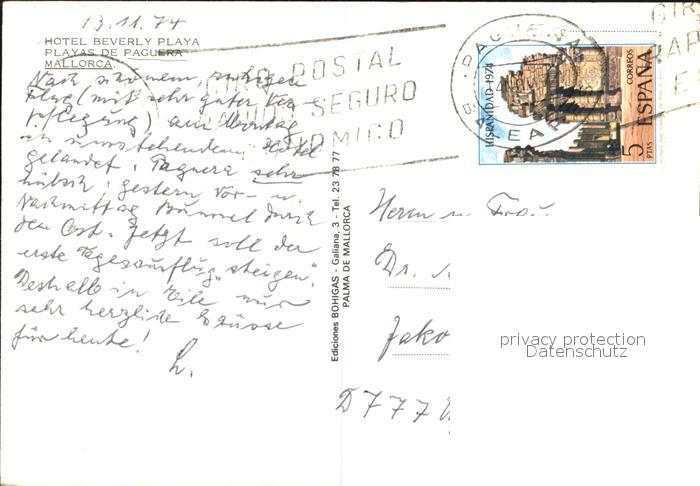 13.11.74
HOTEL BEVERLY PLAYA
PLAYAS DE PAGUERA
MALLORCA
Nach schönem, ruhigen
Flug (mit sehr guter Ver-
pflegung) am Montag
in umstehendem Hotel
gelandet. Paguera sehr
hübsch; gestern Vor- u.
Nachmittag Bummel durch
den Ort. Jetzt soll der
erste Tagesausflug "steigen".
Deshalb in Eile nur
sehr herzliche Grüsse
für heute!
L.
GIRO POSTAL
SEGURO
ECONOMICO
Ediciones BOHIGAS - Galiana, 3 - Tel. 23 78 77
PALMA DE MALLORCA
PAGUERA
BALEARES
HISPANIDAD 1974
CORREOS
ESPAÑA
5
PTAS
GIR
Herrn u. Frau
Dr.
Jako
D777
privacy protection
Datenschutz